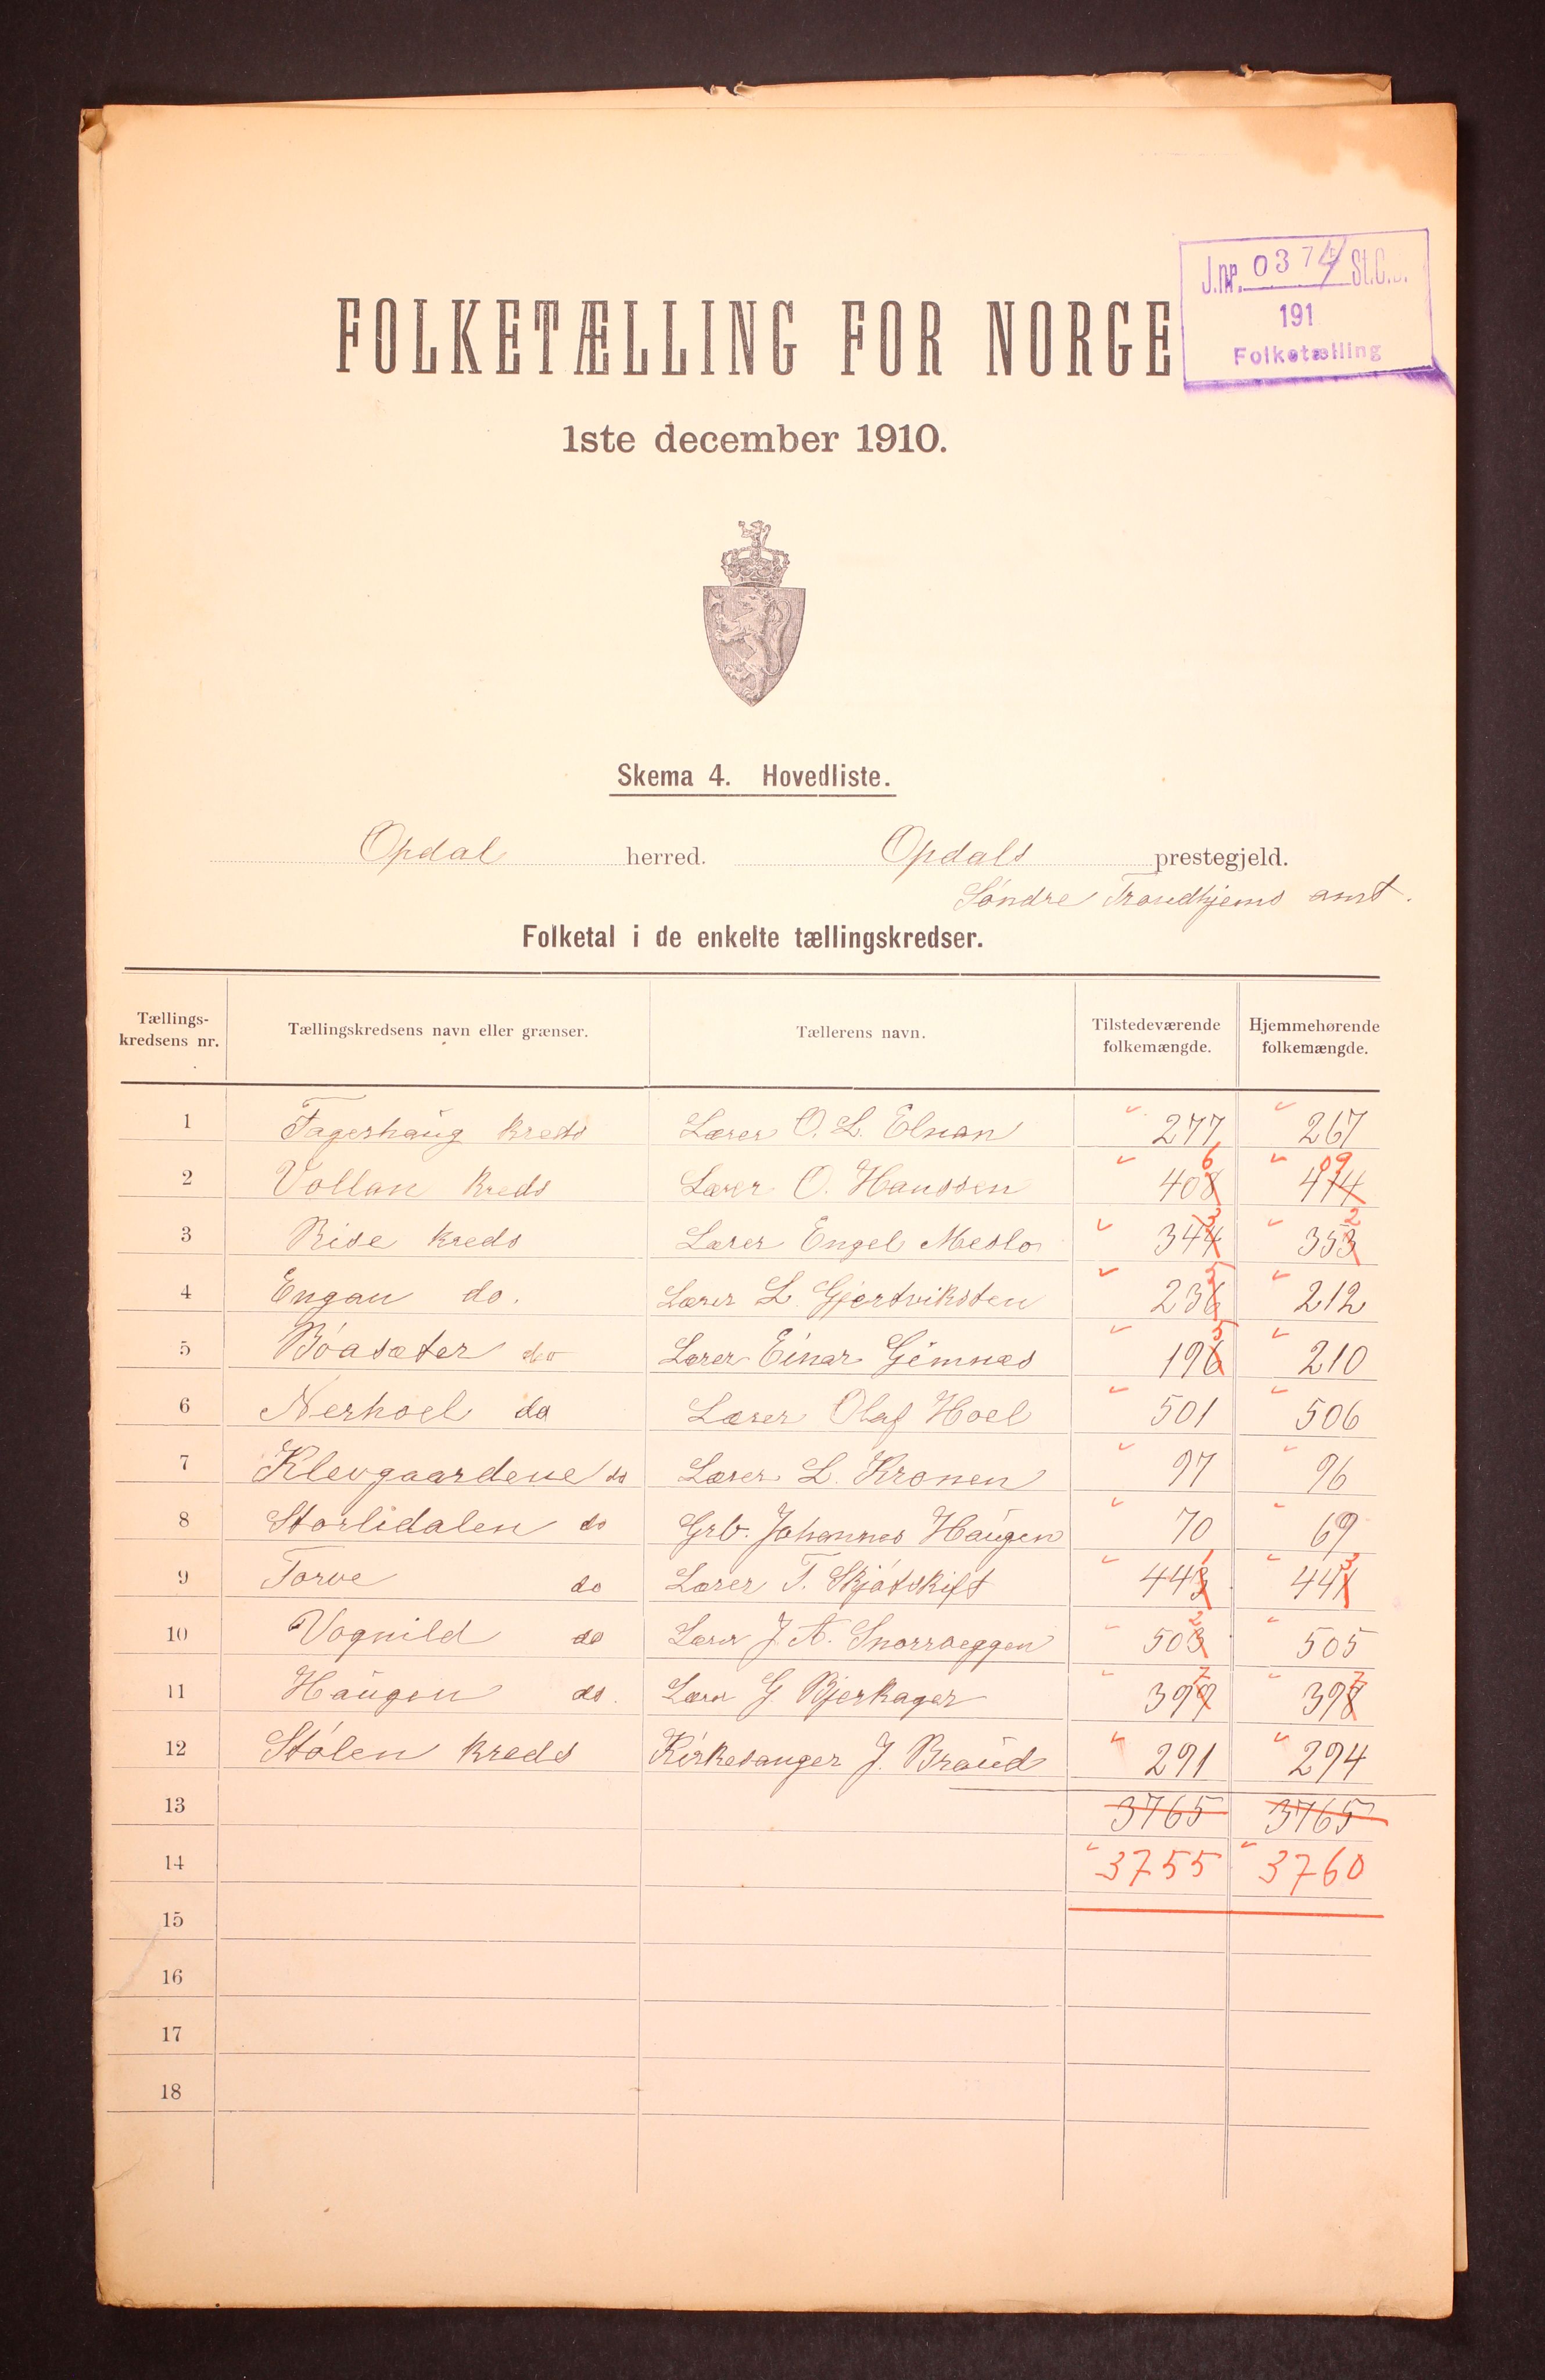 J.nr. 0374 St.C.B.
191
Folketælling
FOLKETÆLLING FOR NORGE
1ste december 1910.
Skema 4. Hovedliste.
Opdal herred. Opdals prestegjeld.
Søndre Trondhjems amt.
Folketal i de enkelte tællingskredser.
Tællings-kredsens nr. Tællingskredsens navn eller grænser. Tællerens navn. Tilstedeværende folkemængde. Hjemmehørende folkemængde.
1 Fagerhaug kreds Lærer O. L. Elnan 277 267
2 Vollan kreds Lærer O. Hanssen 408 6 414 09
3 Rise kreds Lærer Engel Meslo 344 3 353 2
4 Engan do. Lærer L. Gjertviksten 236 5 212
5 Bøasæter do Lærer Einar Gimnæs 196 5 210
6 Nerhoel do Lærer Olaf Hoel 501 506
7 Klevgaardene do Lærer L. Kronen 97 96
8 Storlidalen do Grb. Johannes Haugen 70 69
9 Torve do Lærer T. Skjøtskift 443 1 441 3
10 Vognild do Lærer J. A. Snorroeggen 503 2 505
11 Haugen do. Lærer G. Bjerkager 399 7 398 7
12 Stølen kreds Kirkesanger J. Braud 291 294
13 3765 3765
14 3755 3760
15
16
17
18